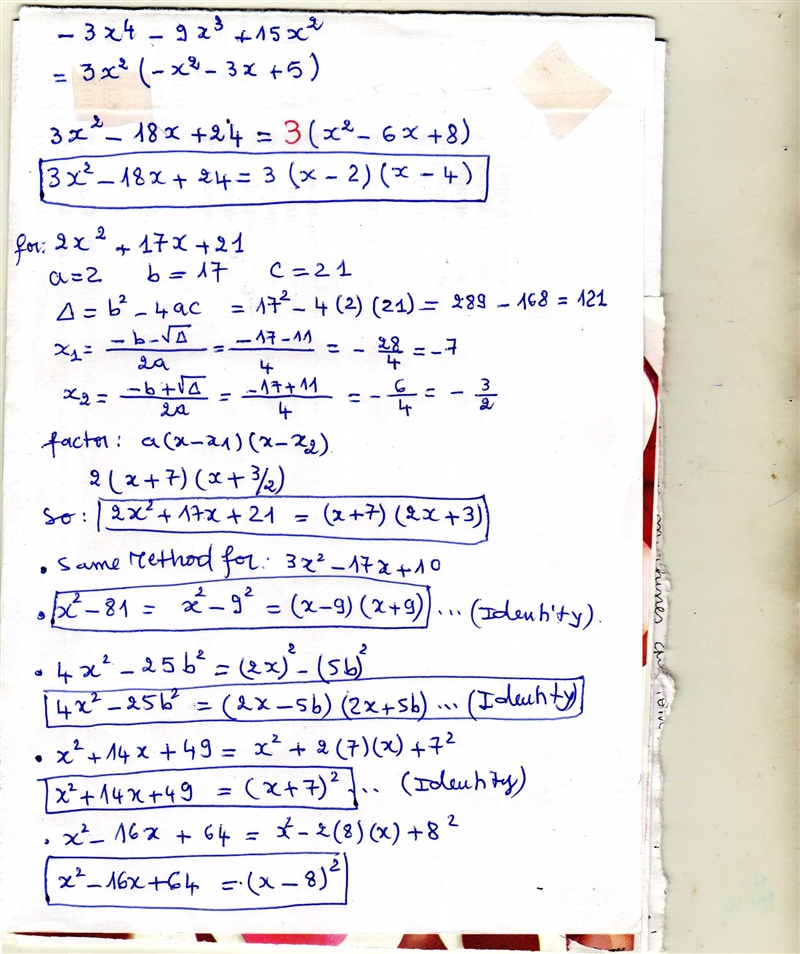 - 3x⁴ - 9x³ + 15x²
= 3x² (-x² - 3x + 5)
3x² - 18x + 24 = 3 (x² - 6x + 8)
3x² - 18x + 24 = 3 (x - 2) (x - 4)
for: 2x² + 17x + 21
a = 2 b = 17 C = 21
Δ = b² - 4ac = 17² - 4 (2) (21) = 289 - 168 = 121
x₁ = (-b - √Δ)/2a = (-17 - 11)/4 = - 28/4 = -7
x₂ = (-b + √Δ)/2a = (-17 + 11)/4 = - 6/4 = - 3/2
factor: a(x - x₁) (x - x₂)
2 (x + 7) (x + 3/2)
So: 2x² + 17x + 21 = (x+7) (2x + 3)
• Same Method for: 3x² - 17x + 10
• x² - 81 = x² - 9² = (x-9) (x+9) ... (Identity).
• 4x² - 25b² = (2x)² - (5b)²
4x² - 25b² = (2x - 5b) (2x + 5b) ... (Identity)
• x² + 14x + 49 = x² + 2 (7) (x) + 7²
x² + 14x + 49 = (x + 7)² ... (Identity)
• x² - 16x + 64 = x² - 2 (8) (x) + 8²
x² - 16x + 64 = (x - 8)²